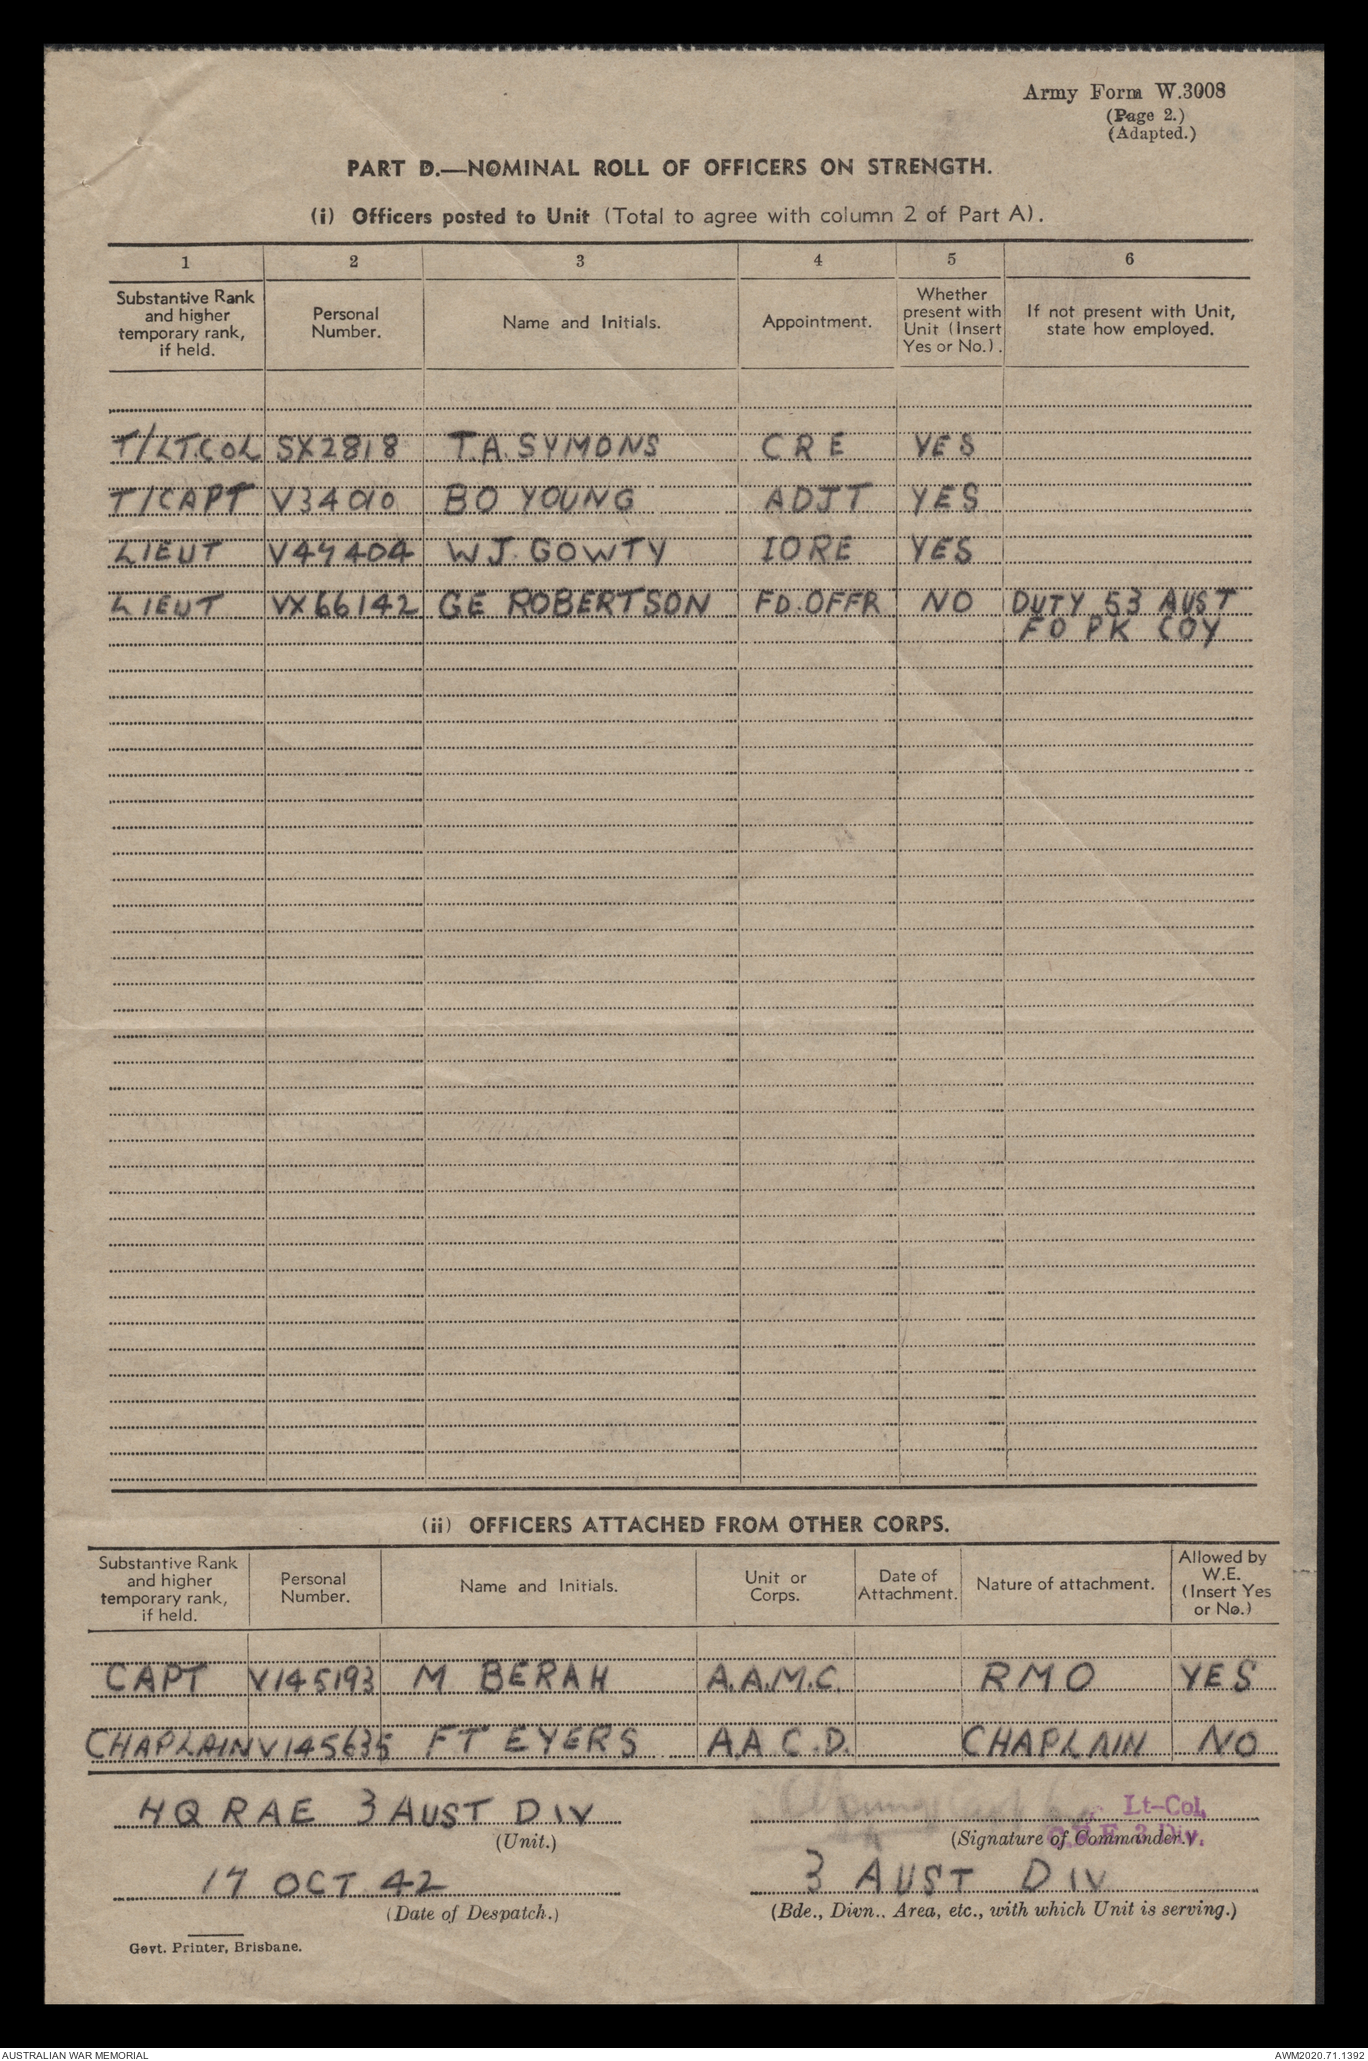 Army Form W.3008
(Page 2.)
(Adapted.)
PART D.—NOMINAL ROLL OF OFFICERS ON STRENGTH.
(i) Officers posted to Unit (Total to agree with column 2 of Part A).
1 2 3 4 5 6
Substantive Rank and higher temporary rank, if held. Personal Number. Name and Initials. Appointment. Whether present with Unit (Insert Yes or No.). If not present with Unit, state how employed.
T/LT.COL SX2818 T.A. SYMONS CRE YES
T/CAPT V34010 BO YOUNG ADJT YES
LIEUT V47404 WJ. GOWTY IORE YES
LIEUT VX66142 GE ROBERTSON FD.OFFR NO DUTY 53 AUST
FD PK COY
(ii) OFFICERS ATTACHED FROM OTHER CORPS.
Substantive Rank and higher temporary rank, if held. Personal Number. Name and Initials. Unit or Corps. Date of Attachment. Nature of attachment. Allowed by W.E. (Insert Yes or No.)
CAPT V145193 M BERAH A.A.M.C. RMO YES
CHAPLAIN V145635 FT EYERS A.A C.D. CHAPLAIN NO
HQ RAE 3 AUST DIV
Lt-Col,
(Unit.)
(Signature of Commander.)
C.R.E. 3 Div.
17 OCT 42
3 AUST DIV
(Date of Despatch.)
(Bde., Divn., Area, etc., with which Unit is serving.)
Govt. Printer, Brisbane.
AUSTRALIAN WAR MEMORIAL
AWM2020.71.1392